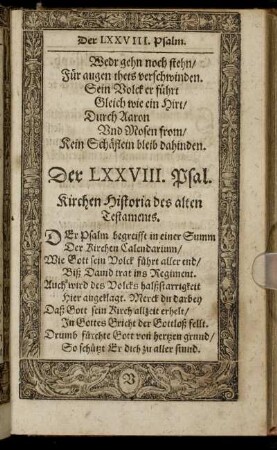 Der LXXVIII. Psalm.
Wedr gehn noch stehn/
Für augen thets verschwinden.
Sein Volck er führt
Gleich wie ein Hirt/
Durch Aaron
Vnd Mosen from/
Kein Schäflein bleib dahinden.
Der LXXVIII. Psal.
Kirchen Historia des alten
Testaments.
DEr Psalm begreifft in einer Summ
Der Kirchen Calendarium/
Wie Gott sein Volck führt aller end/
Biß Dauid trat ins Regiment.
Auch wird des Volcks halßstarrigkeit
Hier angeklagt. Merck du darbey
Daß Gott sein Kirch allzeit erhelt/
In Gottes Gricht der Gottloß fellt.
Drumb fürchte Gott von hertzen grund/
So schützt Er dich zu aller stund.
V